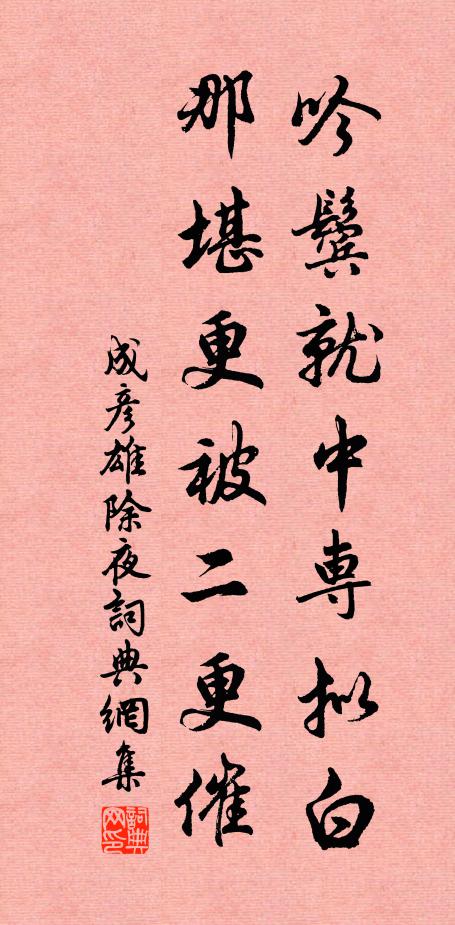 吟鬓就中専拟白
那堪更被二更催
成彦雄除夜詞典網集
詞典网印